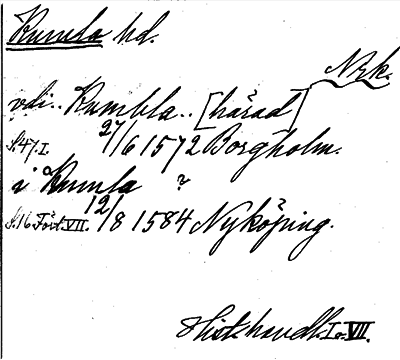 Kumla hd.
Nrk.
vdi.. Kumbla.. [härad]
S.47.I. 27/6 1572 Borgholm.
i Kumla ?
S.16 Fört.VII. 12/8 1584 Nyköping.
Hist. handl. I o. VII.